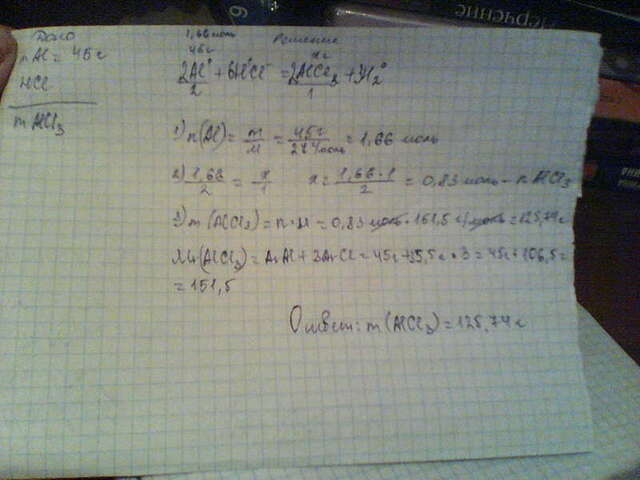 Дано
mAl = 45г
HCl
m AlCl₃
1,66 моль
45г
Решение
xг
2Al⁰ + 6H⁺Cl⁻ = 2AlCl₃ + 3H₂⁰
2
1
1) n(Al) = m/M = 45г/27г/моль = 1,66 моль
2) 1,66/2 = x/1 x = 1,66·1/2 = 0,83 моль - n AlCl₃
3) m(AlCl₃) = n·M = 0,83 моль · 151,5 г/моль = 125,74г
Mr(AlCl₃) = ArAl + 3ArCl = 45г + 35,5г · 3 = 45г + 106,5 =
= 151,5
Ответ: m(AlCl₃) = 125,74г
черчение